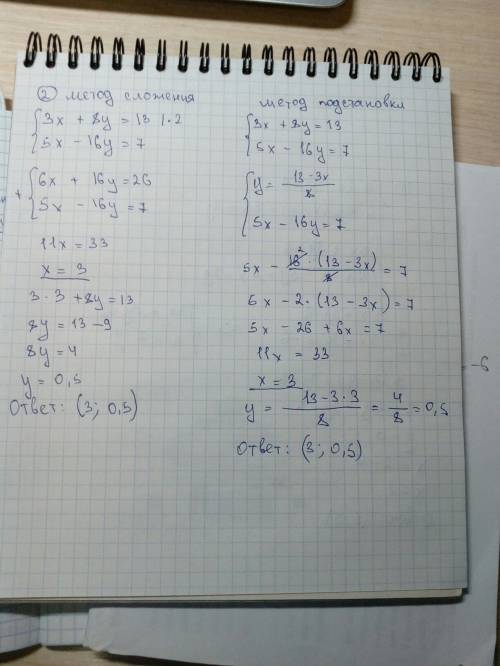 ② метод сложения
{3x + 8y = 13 | · 2
5x − 16y = 7
+ {6x + 16y = 26
5x − 16y = 7
11x = 33
x = 3
3 · 3 + 8y = 13
8y = 13 − 9
8y = 4
y = 0,5
Ответ: (3; 0,5)
метод подстановки
{3x + 8y = 13
5x − 16y = 7
{y = (13 − 3x)/8
5x − 16y = 7
5x − 16² · (13 − 3x)/8 = 7
5x − 2 · (13 − 3x) = 7
5x − 26 + 6x = 7
11x = 33
x = 3
y = (13 − 3 · 3)/8 = 4/8 = 0,5
Ответ: (3; 0,5)
−6